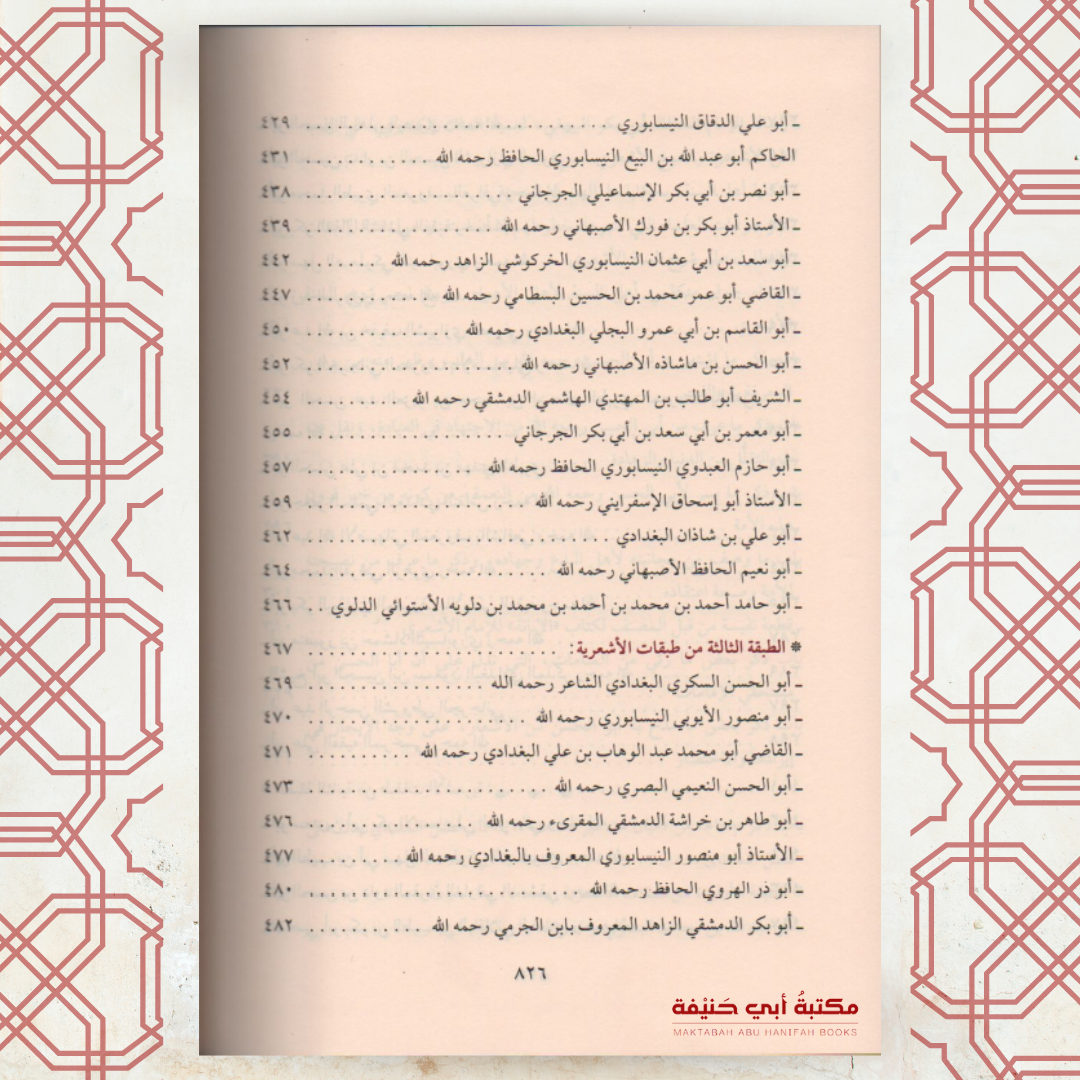 ـ أبو علي الدقاق النيسابوري . . . . . . . . . . . . . . . . . . . . . . . . . . . . ٤٢٩
الحاكم أبو عبد الله بن البيع النيسابوري الحافظ رحمه الله . . . . . . . . . . . . ٤٣١
ـ أبو نصر بن أبي بكر الإسماعيلي الجرجاني . . . . . . . . . . . . . . . . . . . ٤٣٨
ـ الأستاذ أبو بكر بن فورك الأصبهاني رحمه الله . . . . . . . . . . . . . . . . . . ٤٣٩
ـ أبو سعد بن أبي عثمان النيسابوري الخركوشي الزاهد رحمه الله . . . . . . . ٤٤٢
ـ القاضي أبو عمر محمد بن الحسين البسطامي رحمه الله . . . . . . . . . . . . ٤٤٧
ـ أبو القاسم بن أبي عمرو البجلي البغدادي رحمه الله . . . . . . . . . . . . . . ٤٥٠
ـ أبو الحسن بن ماشاذه الأصبهاني رحمه الله . . . . . . . . . . . . . . . . . . . ٤٥٢
ـ الشريف أبو طالب بن المهتدي الهاشمي الدمشقي رحمه الله . . . . . . . . . ٤٥٤
ـ أبو معمر بن أبي سعد بن أبي بكر الجرجاني . . . . . . . . . . . . . . . . . . . ٤٥٥
ـ أبو حازم العبدوي النيسابوري الحافظ رحمه الله . . . . . . . . . . . . . . . . ٤٥٧
ـ الأستاذ أبو إسحاق الإسفرايني رحمه الله . . . . . . . . . . . . . . . . . . . . ٤٥٩
ـ أبو علي بن شاذان البغدادي . . . . . . . . . . . . . . . . . . . . . . . . . . . . ٤٦٢
ـ أبو نعيم الحافظ الأصبهاني رحمه الله . . . . . . . . . . . . . . . . . . . . . . ٤٦٤
ـ أبو حامد أحمد بن محمد بن أحمد بن محمد بن دلويه الأستوائي الدلوي . . ٤٦٦
* الطبقة الثالثة من طبقات الأشعرية: . . . . . . . . . . . . . . . . . . . . . . . ٤٦٧
ـ أبو الحسن السكري البغدادي الشاعر رحمه الله . . . . . . . . . . . . . . . . ٤٦٩
ـ أبو منصور الأيوبي النيسابوري رحمه الله . . . . . . . . . . . . . . . . . . . . ٤٧٠
ـ القاضي أبو محمد عبد الوهاب بن علي البغدادي رحمه الله . . . . . . . . . . ٤٧١
ـ أبو الحسن النعيمي البصري رحمه الله . . . . . . . . . . . . . . . . . . . . . . ٤٧٣
ـ أبو طاهر بن خراشة الدمشقي المقرىء رحمه الله . . . . . . . . . . . . . . . ٤٧٦
ـ الأستاذ أبو منصور النيسابوري المعروف بالبغدادي رحمه الله . . . . . . . . . ٤٧٧
ـ أبو ذر الهروي الحافظ رحمه الله . . . . . . . . . . . . . . . . . . . . . . . . . . ٤٨٠
ـ أبو بكر الدمشقي الزاهد المعروف بابن الجرمي رحمه الله . . . . . . . . . . . . ٤٨٢
٨٢٦
مكتبةُ أبي حَنيْفة
MAKTABAH ABU HANIFAH BOOKS